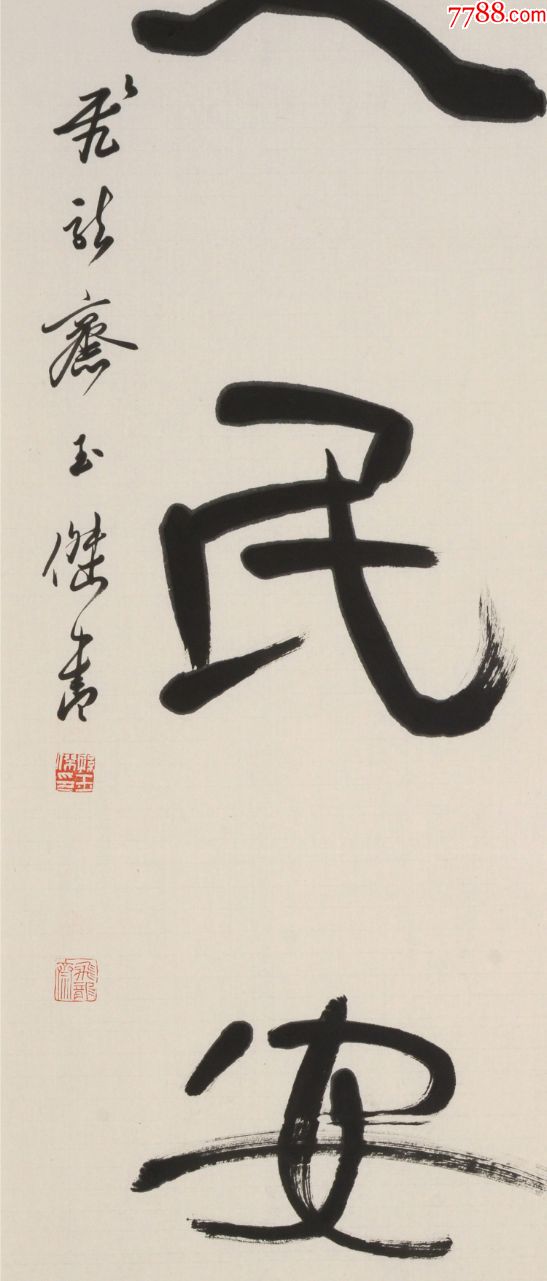 7788.com
民安
飛龍齋玉傑書
飛龍齋